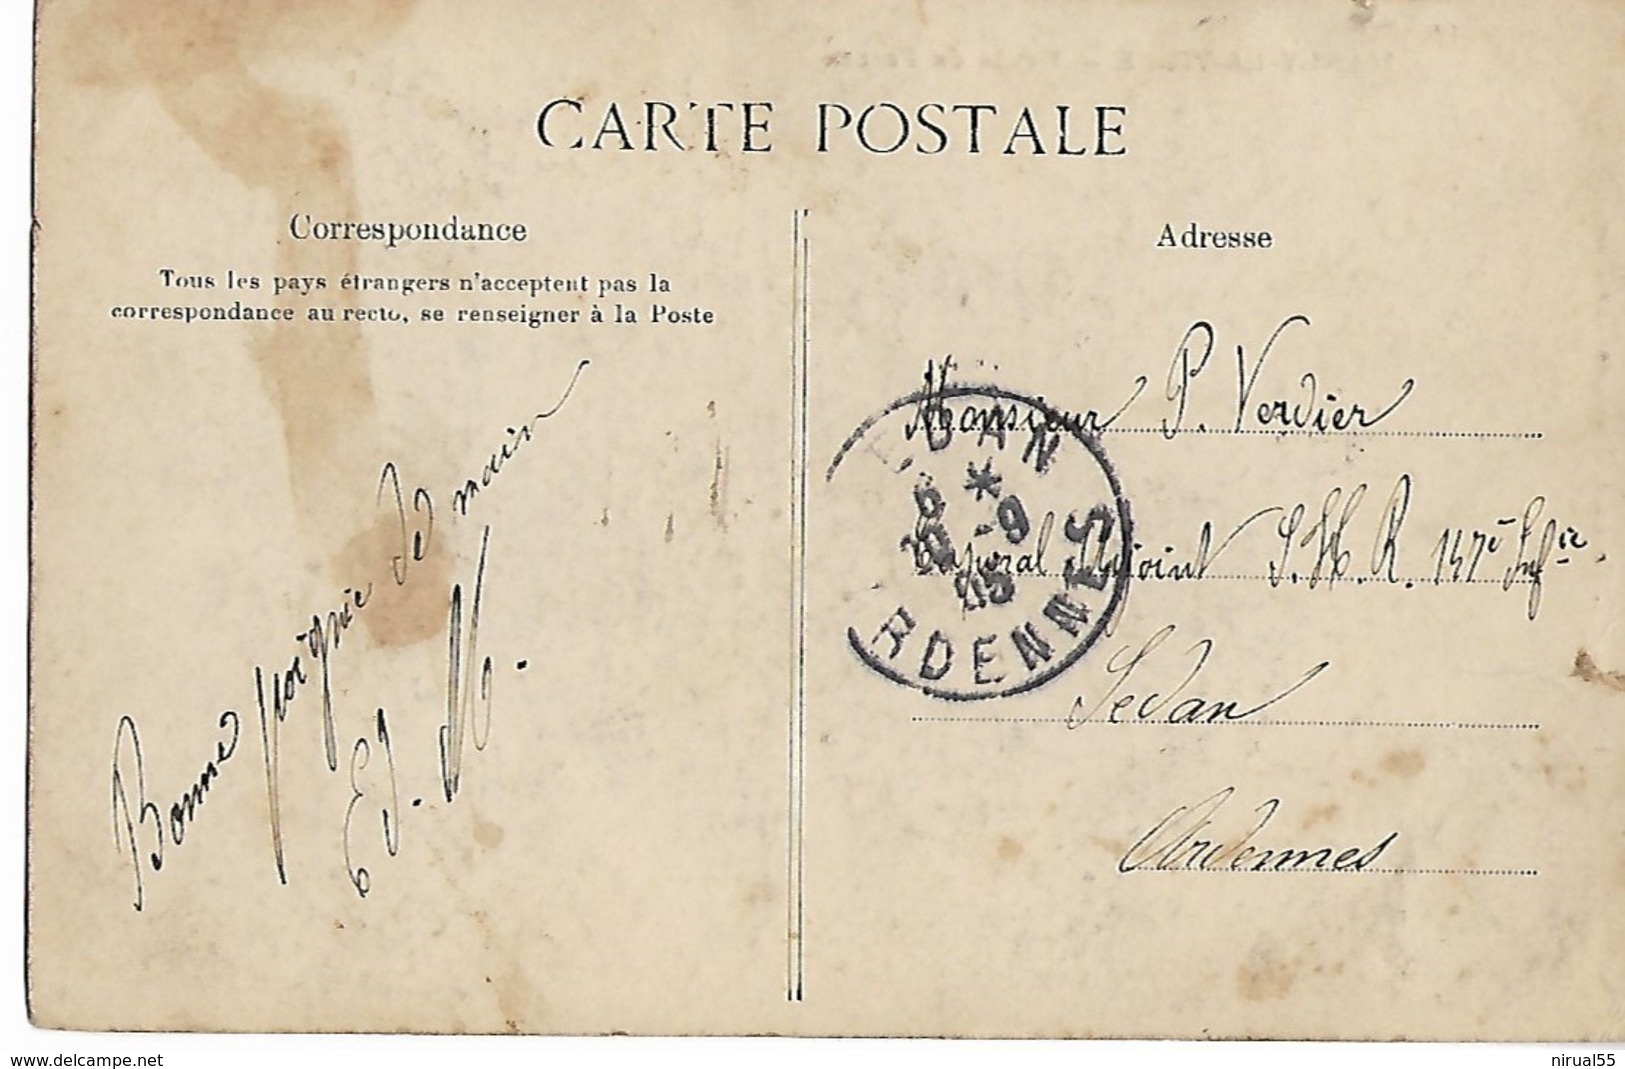 CARTE POSTALE
Correspondance
Tous les pays étrangers n'acceptent pas la
correspondance au recto, se renseigner à la Poste
Bonne poignée de main
M.
Adresse
Monsieur P. Verdier
Caporal Adjoint S.H.R. 147e Infie
Sedan
Ardennes
EDAN
*
-9
05
RDENNES
delcampe.net
nirual55